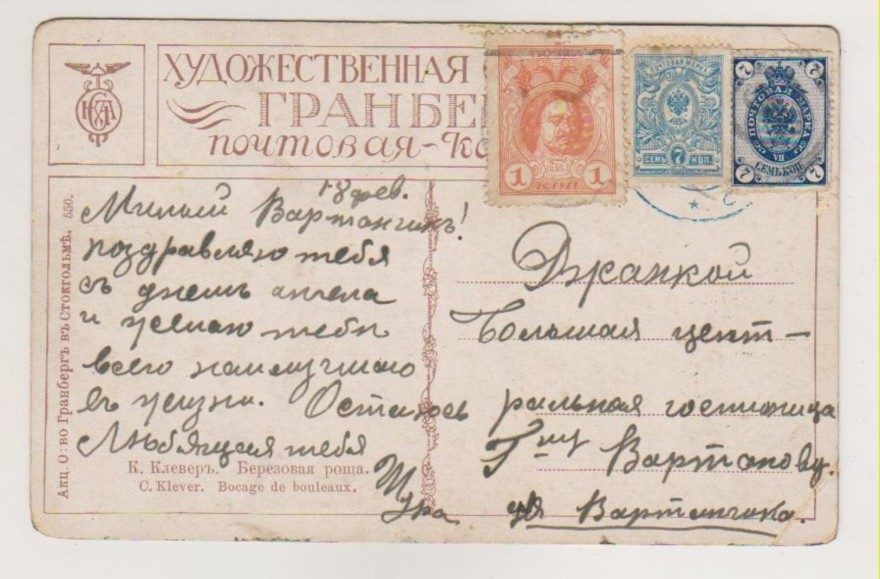 ХУДОЖЕСТВЕННАЯ
ГРАНБЕ
ПОЧТОВАЯ-КА
1
КОП
1
7
СЕМЬ
КОП.
7
7
ПОЧТОВАЯ МАРКА
VII
СЕМЬ КОП.
7
7
18 фев.
Милый Вартанчикъ!
поздравляю тебя
съ днемъ ангела
и желаю тебе
всего наилучшаго
въ жизни. Остаюсь
Любящая тебя
Шура
Джанкой
Большая цент-
ральная гостиница
Гну Вартанову.
для Вартанчика.
К. Клеверъ. Березовая роща.
C. Klever. Bocage de bouleaux.
Акц. О: во Гранбергъ въ Стокгольмѣ. 550.